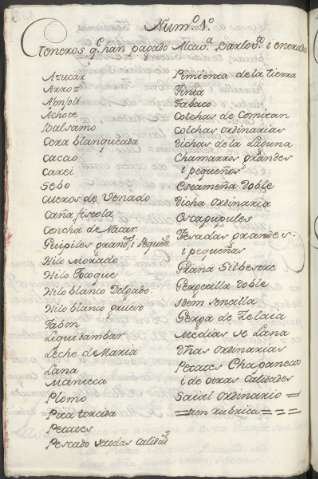 Num.º 1.º
Generos q.e han pagado Alcav.a Barlov.to i
Azucar
Arroz
Achote
Balsamo
Cera blanqueada
Cacao
Carei
Sebo
Cueros de Venado
Caña fistola
Concha de Nacar
Petipiles grand.s i pequeñ.s
Hilo Morado
Hilo Floxo
Hilo blanco Delgado
Hilo blanco grueso
Jabon
Liquidambar
Leche de Maria
Lana
Manteca
Plomo
Pita torcida
Petates
Pescado de todas calid.s
Pimienta de la tierra
Piñia
Tabaco
Colchas de Comitan
Colchas ordinarias
Dichas de la Laguna
Chamarres grandes
i pequeños
Escameña Doble
Dicha ordinaria
Fresadas grandes
i pequeñas
Grana Silbestre
Gergeilla Doble
Idem Senalla
Gerga de Zelaia
Medias de Lana
Dhas ordinarias
Petates Chapaneco
i de otras Calidades
Saial Ordinario =
=em rubrica= = = =